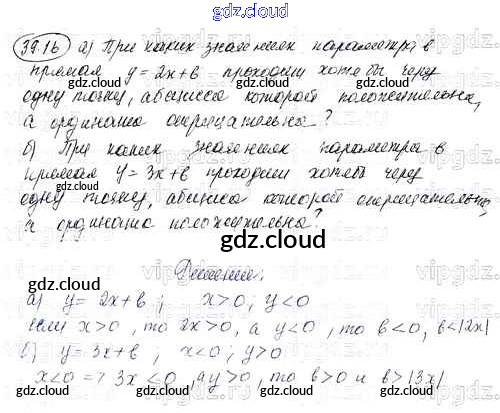 gdz.cloud
39.16 а) При каких значениях параметра в
прямая y = 2x+в проходит хотя бы через
одну точку, абсцисса которой положительна,
а ордината отрицательна?
gdz.cloud
б) При каких значениях параметра в
прямая y = 3x+в проходит хотя бы через
одну точку, абсцисса которой отрицательна,
а ордината положительна?
gdz.cloud
Решение:
а) y = 2x+в ; x>0 ; y<0
если x>0 , то 2x>0, а y<0 , то в<0, в<|2x|
б) y = 3x+в , x<0 ; y>0
x<0 => 3x<0, а y>0 , то в>0 и в>|3x|
gdz.cloud